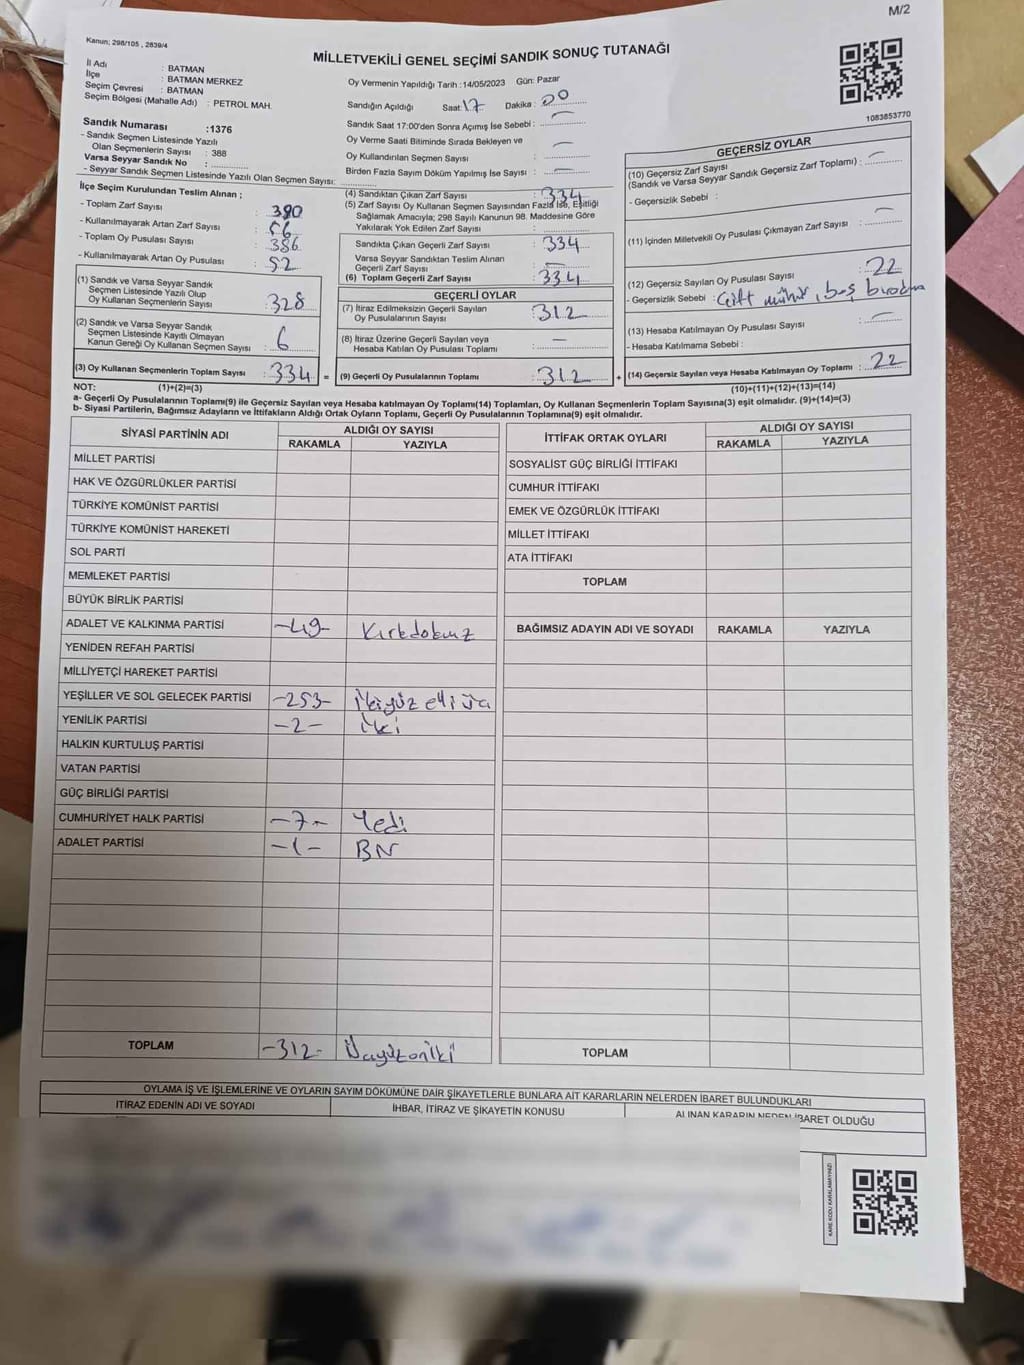 M/2
Kanun; 298/105 , 2839/4
MİLLETVEKİLİ GENEL SEÇİMİ SANDIK SONUÇ TUTANAĞI
İl Adı : BATMAN
İlçe : BATMAN MERKEZ
Seçim Çevresi : BATMAN
Seçim Bölgesi (Mahalle Adı) : PETROL MAH.
Sandık Numarası :1376
- Sandık Seçmen Listesinde Yazılı
Olan Seçmenlerin Sayısı : 388
Varsa Seyyar Sandık No :
- Seyyar Sandık Seçmen Listesinde Yazılı Olan Seçmen Sayısı:
Oy Vermenin Yapıldığı Tarih :14/05/2023 Gün: Pazar
Sandığın Açıldığı Saat: 17 Dakika : 00
Sandık Saat 17:00'den Sonra Açımış İse Sebebi :
Oy Verme Saati Bitiminde Sırada Bekleyen ve
Oy Kullandırılan Seçmen Sayısı :
Birden Fazla Sayım Döküm Yapılmış İse Sayısı :
1083853770
İlçe Seçim Kurulundan Teslim Alınan ;
- Toplam Zarf Sayısı : 390
- Kullanılmayarak Artan Zarf Sayısı : 56
- Toplam Oy Pusulası Sayısı : 386
- Kullanılmayarak Artan Oy Pusulası : 52
(1) Sandık ve Varsa Seyyar Sandık
Seçmen Listesinde Yazılı Olup
Oy Kullanan Seçmenlerin Sayısı : 328
(2) Sandık ve Varsa Seyyar Sandık
Seçmen Listesinde Kayıtlı Olmayan
Kanun Gereği Oy Kullanan Seçmen Sayısı : 6
(3) Oy Kullanan Seçmenlerin Toplam Sayısı : 334 =
(4) Sandıktan Çıkan Zarf Sayısı : 334
(5) Zarf Sayısı Oy Kullanan Seçmen Sayısından Fazla İse, Eşitliği
Sağlamak Amacıyla; 298 Sayılı Kanunun 98. Maddesine Göre
Yakılarak Yok Edilen Zarf Sayısı :
Sandıkta Çıkan Geçerli Zarf Sayısı : 334
Varsa Seyyar Sandıktan Teslim Alınan
Geçerli Zarf Sayısı :
(6) Toplam Geçerli Zarf Sayısı : 334
GEÇERLİ OYLAR
(7) İtiraz Edilmeksizin Geçerli Sayılan
Oy Pusulasının Sayısı : 312
(8) İtiraz Üzerine Geçerli Sayılan veya
Hesaba Katılan Oy Pusulası Toplamı : —
(9) Geçerli Oy Pusulalarının Toplamı : 312 +
GEÇERSİZ OYLAR
(10) Geçersiz Zarf Sayısı
(Sandık ve Varsa Seyyar Sandık Geçersiz Zarf Toplamı) :
- Geçersizlik Sebebi :
(11) İçinden Milletvekili Oy Pusulası Çıkmayan Zarf Sayısı :
(12) Geçersiz Sayılan Oy Pusulası Sayısı : 22
- Geçersizlik Sebebi : Çift mühür, boş bırakma
(13) Hesaba Katılmayan Oy Pusulası Sayısı :
- Hesaba Katılmama Sebebi :
(14) Geçersiz Sayılan veya Hesaba Katılmayan Oy Toplamı : 22
NOT: (1)+(2)=(3) (10)+(11)+(12)+(13)=(14)
a- Geçerli Oy Pusulalarının Toplamı(9) ile Geçersiz Sayılan veya Hesaba katılmayan Oy Toplamı(14) Toplamları, Oy Kullanan Seçmenlerin Toplam Sayısına(3) eşit olmalıdır. (9)+(14)=(3)
b- Siyasi Partilerin, Bağımsız Adayların ve İttifakların Aldığı Ortak Oyların Toplamı, Geçerli Oy Pusulalarının Toplamına(9) eşit olmalıdır.
SİYASİ PARTİNİN ADI ALDIĞI OY SAYISI
RAKAMLA YAZIYLA
MİLLET PARTİSİ
HAK VE ÖZGÜRLÜKLER PARTİSİ
TÜRKİYE KOMÜNİST PARTİSİ
TÜRKİYE KOMÜNİST HAREKETİ
SOL PARTİ
MEMLEKET PARTİSİ
BÜYÜK BİRLİK PARTİSİ
ADALET VE KALKINMA PARTİSİ -49- Kırkdokuz
YENİDEN REFAH PARTİSİ
MİLLİYETÇİ HAREKET PARTİSİ
YEŞİLLER VE SOL GELECEK PARTİSİ -253- İkiyüz elli üç
YENİLİK PARTİSİ -2- İki
HALKIN KURTULUŞ PARTİSİ
VATAN PARTİSİ
GÜÇ BİRLİĞİ PARTİSİ
CUMHURİYET HALK PARTİSİ -7- Yedi
ADALET PARTİSİ -1- BİR
TOPLAM -312- Üçyüzoniki
İTTİFAK ORTAK OYLARI ALDIĞI OY SAYISI
RAKAMLA YAZIYLA
SOSYALİST GÜÇ BİRLİĞİ İTTİFAKI
CUMHUR İTTİFAKI
EMEK VE ÖZGÜRLÜK İTTİFAKI
MİLLET İTTİFAKI
ATA İTTİFAKI
TOPLAM
BAĞIMSIZ ADAYIN ADI VE SOYADI RAKAMLA YAZIYLA
TOPLAM
OYLAMA İŞ VE İŞLEMLERİNE VE OYLARIN SAYIM DÖKÜMÜNE DAİR ŞİKAYETLERLE BUNLARA AİT KARARLARIN NELERDEN İBARET BULUNDUKLARI
İTİRAZ EDENİN ADI VE SOYADI İHBAR, İTİRAZ VE ŞİKAYETİN KONUSU ALINAN KARARIN NEDEN İBARET OLDUĞU
KARE KODU KARALAMAYINIZ!